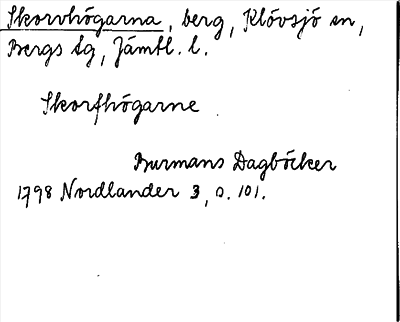 Skorvhögarna, berg, Klövsjö sn,
Bergs tg, Jämtl. l.
Skorfhögarne
Burmans Dagböcker
1798 Nordlander 3, o. 101.